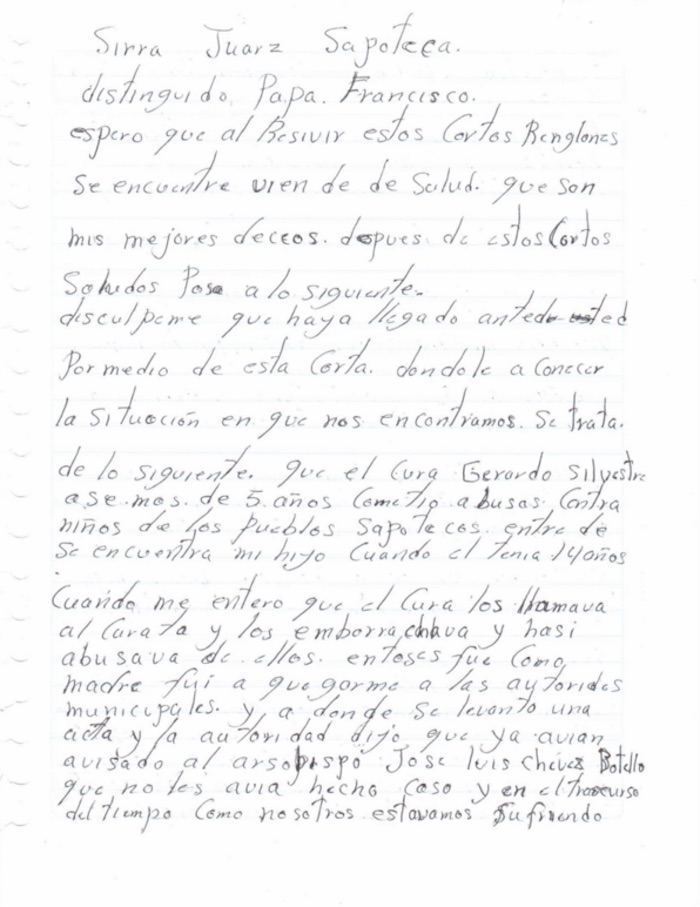 Sirra Juarz Sapoteca.
distinguido. Papa. Francisco.
espero que al Resivir estos Cortos Renglones
Se encuentre vien de de Salud. que son
mis mejores deceos. dopues de estos Cortos
Saludos Paso a lo siguiente.
disculpeme que haya llegado antede usted
Por medio de esta Carta. dondole a Conecer
la situación en que nos encontramos. Se trata.
de lo siguiente. que el Cura Gerardo Silvestre
ase mas. de 5 años Cometio abusos Contra
niños de los Pueblos Sapotecos. entre de
Se encuentra mi hijo Cuando el tenia 14 años
Cuando me entero que el Cura los llamava
al Curato y los emborrachava y hasi
abusava de ellos. entoses fue Como
madre fui a quegarme a las autorides
municipales. y a donde se levanto una
acta y la autoridad dijo que ya avian
avisado al arsobispo Jose luis Chévez Botello
que no les avia hecho Caso y en el trascurso
del tiempo Como nosotros estavamos Sufriendo